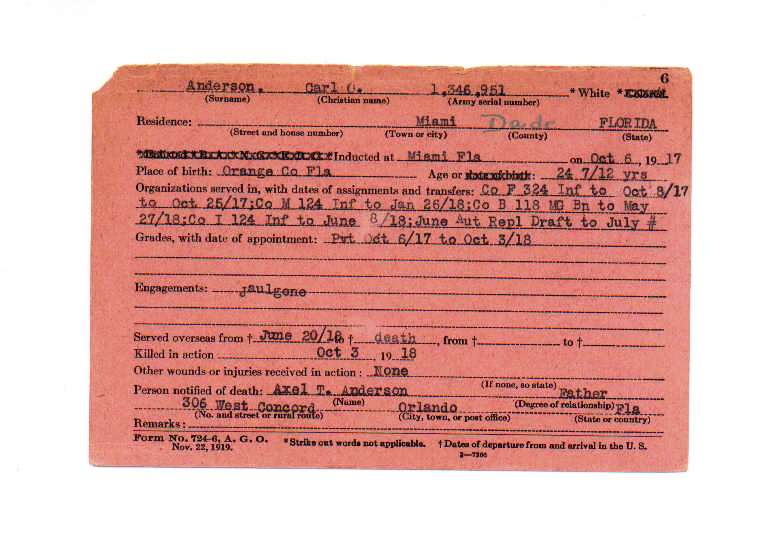 6
Anderson. Carl O. 1,346,951 * White * Colored.
(Surname) (Christian name) (Army serial number)
Residence: Miami Dade FLORIDA
(Street and house number) (Town or city) (County) (State)
* Inducted at Miami Fla on Oct 6, 1917
Place of birth: Orange Co Fla Age or : 24 7/12 yrs
Organizations served in, with dates of assignments and transfers: Co F 324 Inf to Oct 8/17
to Oct 25/17;Co M 124 Inf to Jan 26/18;Co B 118 MG Bn to May
27/18;Co I 124 Inf to June 8/18;June Aut Repl Draft to July #
Grades, with date of appointment: Pvt Oct 6/17 to Oct 3/18
Engagements: Jaulgone
Served overseas from † June 20/18 to † death, from † to †
Killed in action Oct 3, 1918
Other wounds or injuries received in action: None
(If none, so state)
Person notified of death: Axel T. Anderson Father
(Name) (Degree of relationship)
306 West Concord Orlando Fla
(No. and street or rural route) (City, town, or post office) (State or country)
Remarks:
Form No. 724-6, A. G. O. *Strike out words not applicable. † Dates of departure from and arrival in the U. S.
Nov. 22, 1919.